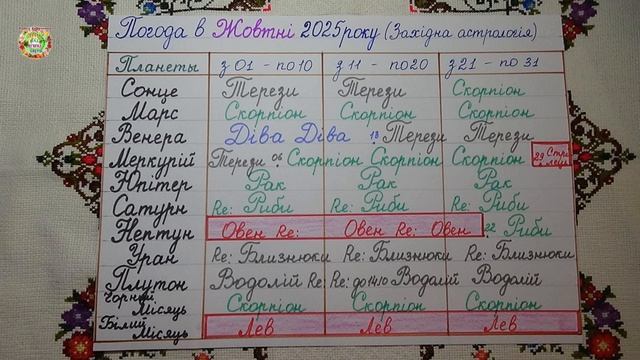 Погода в Жовтні 2025року (Західна астрологія)
Планеты з 01 - по10 з 11 - по20 з 21 - по 31
Сонце Терези Терези Скорпіон
Марс Скорпіон Скорпіон Скорпіон
Венера Діва Діва 13 Терези Терези
Меркурій Терези 06 Скорпіон Скорпіон Скорпіон 29 Стрілець
Юпітер Рак Рак Рак
Сатурн Re: Риби Re: Риби Re: Риби
Нептун Овен Re: Овен Re: Овен 22 Риби
Уран Re: Близнюки Re: Близнюки Re: Близнюки
Плутон Водолій Re: Re: до 14.10 Водолій Водолій
Чорний Місяць Скорпіон Скорпіон Скорпіон
Білий Місяць Лев Лев Лев